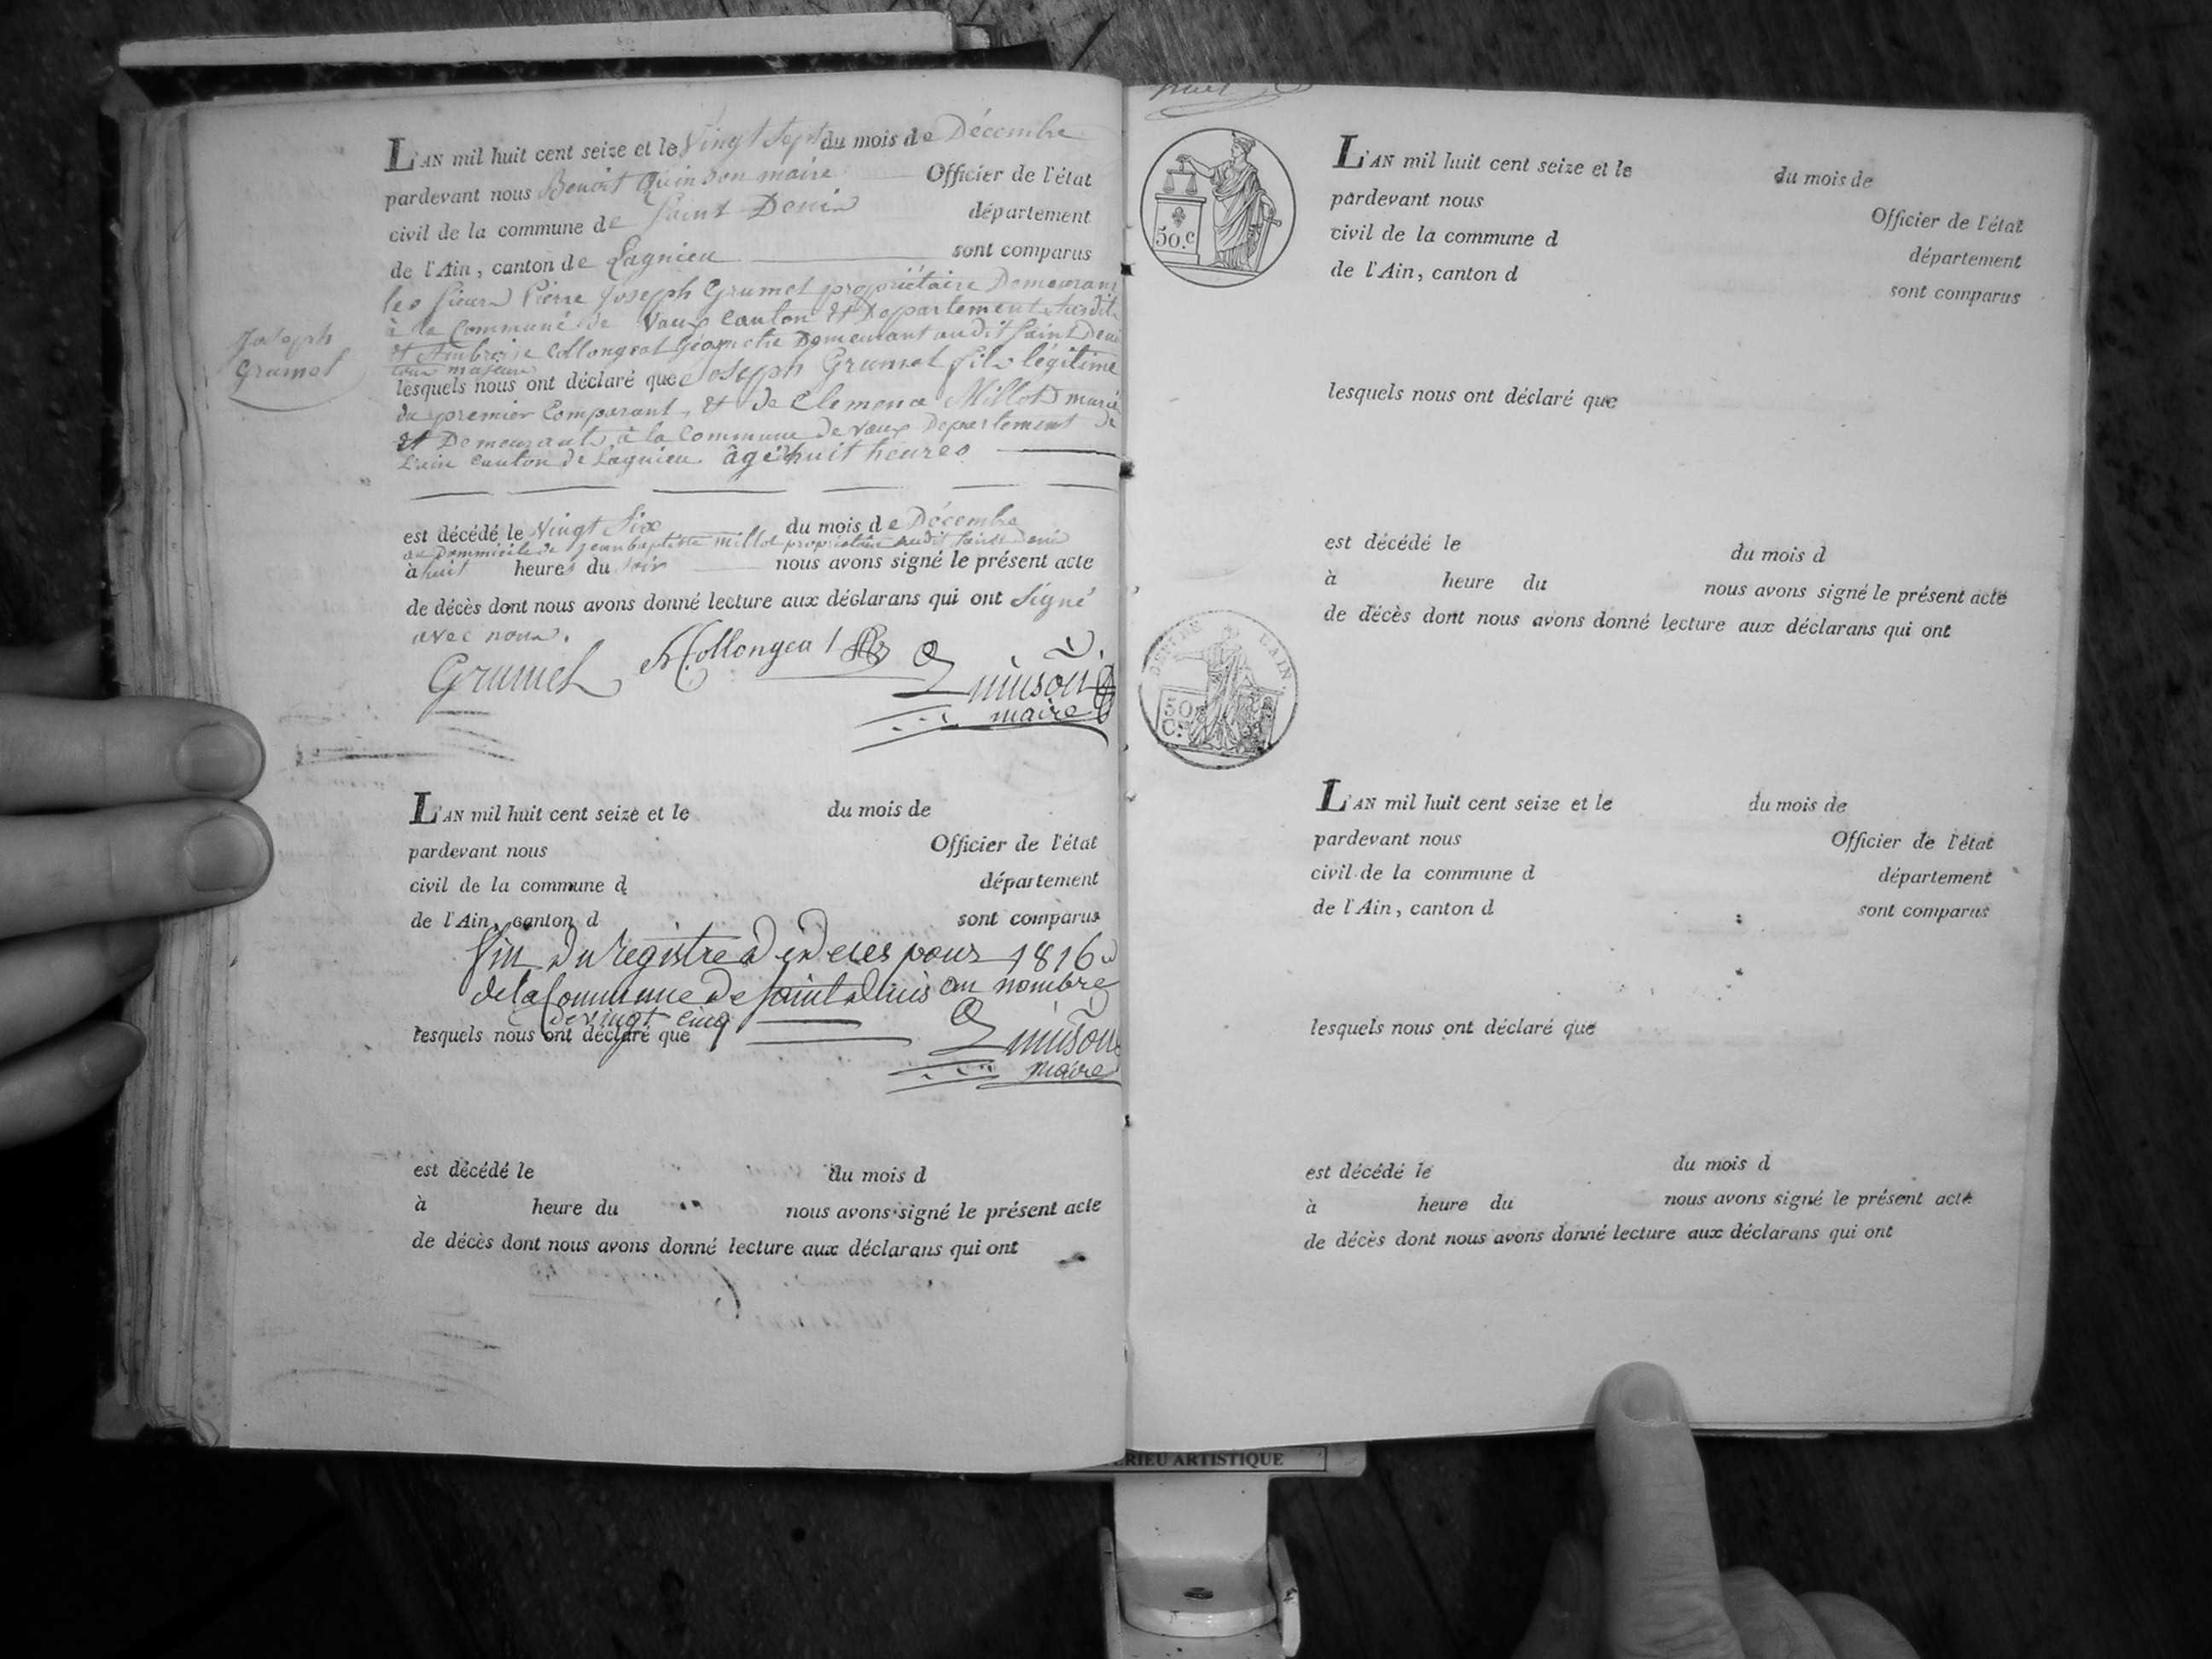 L'AN mil huit cent seize et le Vingt Sept du mois de Décembre
pardevant nous Benoit Quinson maire Officier de l'état
civil de la commune de Saint Denis département
de l'Ain, canton de Lagnieu sont comparus
les sieurs Pierre Joseph Grumet propriétaire Demeurant
à la Commune de Vaux canton et Departement susdit
et Ambroise Collongeat Géometre Demeurant audit Saint Denis
tous majeurs
Joseph
Grumet
lesquels nous ont déclaré que Joseph Grumet fils légitime
du premier Comparant, et de Clemence Millot mariés
et Demeurants à la Commune de Vaux Departement de
L'ain Canton de Lagnieu âgé huit heures
est décédé le Vingt Six du mois de Décembre
au Dommicile de Jean baptiste Millot propriétaire audit Saint Denis
à huit heures du soir nous avons signé le présent acte
de décès dont nous avons donné lecture aux déclarans qui ont signé
avec nous.
Grumet Collongeat Quinson
maire
L'AN mil huit cent seize et le du mois de
pardevant nous Officier de l'état
civil de la commune d département
de l'Ain, canton d sont comparus
fin du registre de deces pour 1816
de la Commune de Saint Denis au nombre
de vingt cinq
lesquels nous ont déclaré que
Quinson
maire
est décédé le du mois d
à heure du nous avons signé le présent acte
de décès dont nous avons donné lecture aux déclarans qui ont
50.c
L'AN mil huit cent seize et le du mois de
pardevant nous Officier de l'état
civil de la commune d département
de l'Ain, canton d sont comparus
lesquels nous ont déclaré que
est décédé le du mois d
à heure du nous avons signé le présent acte
de décès dont nous avons donné lecture aux déclarans qui ont
L'AIN
50
Cs
L'AN mil huit cent seize et le du mois de
pardevant nous Officier de l'état
civil de la commune d département
de l'Ain, canton d sont comparus
lesquels nous ont déclaré que
est décédé le du mois d
à heure du nous avons signé le présent acte
de décès dont nous avons donné lecture aux déclarans qui ont
RIEU ARTISTIQUE